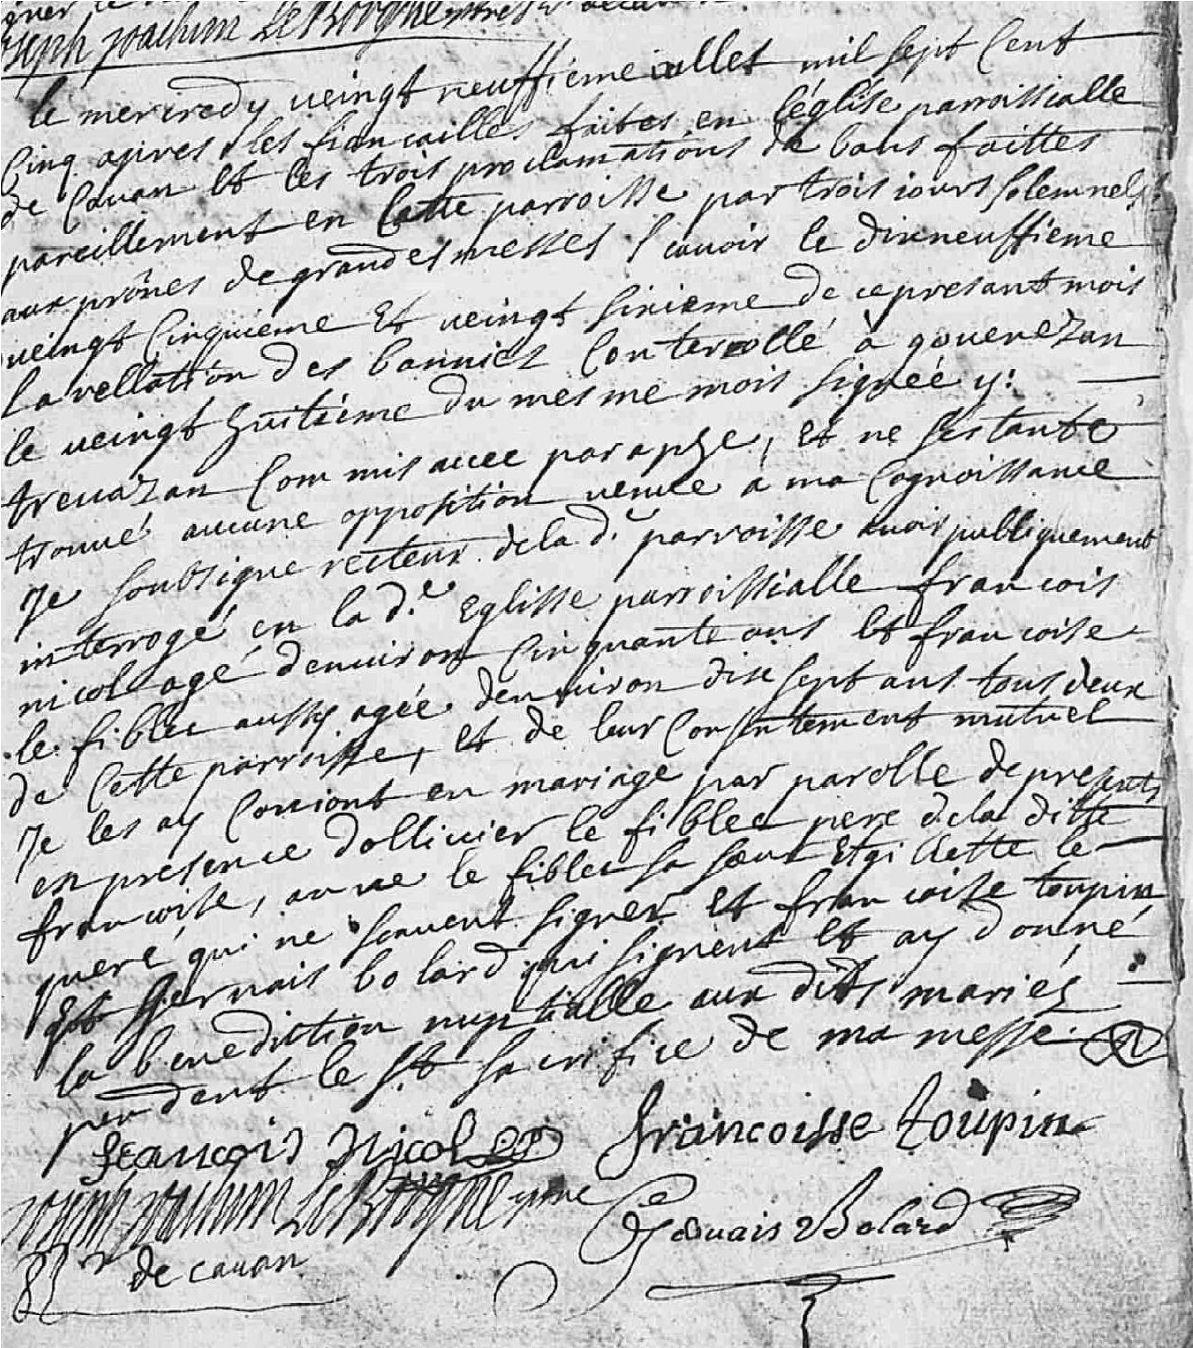 joseph joachim LeBorgne
le mercredy veingt neuffieme iullet mil sept Cent
Cinq apres les fiancailles faites en l'église parroissialle
de Cavan et les trois proclamations de bans faittes
pareillement en Cette parroisse par trois iours solemnels
aux prônes de grandes messes scavoir le dixneuffieme
veingt Cinquieme et veingt sixieme de ce presant mois
la rellation des bannies Conterollé à gouenezan
le veingt huitieme du mesme mois signée y:
trevazan Commis avec paraphe, et ne s'estante
trouvé aucune opposition venue a ma Cognoissance
Je soubsigne recteur de la d. parroisse avoir publiquement
interrogé en la d.e Eglisse parroissialle francois
nicol agé denviron Cinquante ans et francoise
le fiblec aussy agée denviron dix sept ans tous deux
de Cette parroisse, et de leur Consentement mutuel
Je les ay Conioint en mariage par parolle de presents
en presence dollivier le fiblec pere de la ditte
francoise, anne le fiblec sa sœur et gillette le
queré qui ne scavent signer et francoise toupin
et Gervais bolard qui signent et ay donné
la benediction nuptialle aux dits mariés
pendent le st sacrifice de ma messe.
francois Nicol francoisse toupin
joseph joachim LeBorgne ptre Gervais Bolard
Rr de cavan